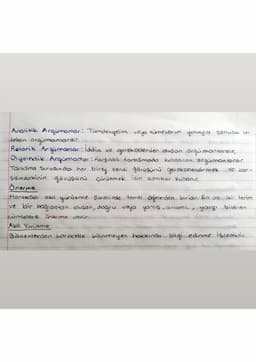 Analitik Argümanlar: Tümdengelim veya tümevarım yoluyla sonuca
argümanlardır.
Retorik Argümanlar: İddia ve gerekçelerden oluşan argümanlardır.
Diyalektik Argümanlar: Karşılıklı tartışmada kullanılan argümanlardır.
Tartışma sırasında her birey kendi görüşünü gerekçelendirmek ve
görüşünü çürütmek için kanıtlar kullanır.
Önerme
Mantıksal akıl yürütme sürecinde temel öğelerden biridir. En az iki terim
ve bir bağlaçtan oluşan, doğru veya yanlış, anlamlı, yargı bildiren
cümlelere önerme denir.
Akıl Yürütme
Bilinenlerden hareketle bilinmeyen hakkında bilgi edinme